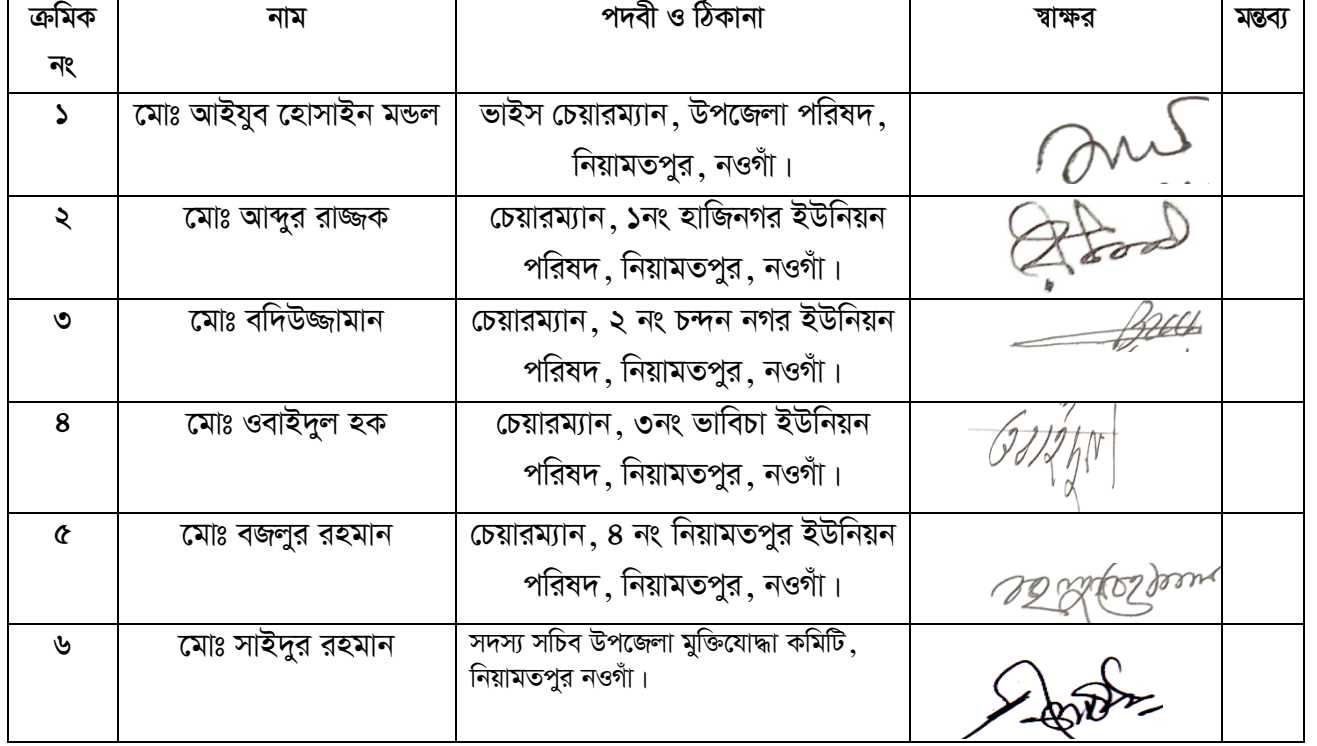 ক্রমিক নং নাম পদবী ও ঠিকানা স্বাক্ষর মন্তব্য
১ মোঃ আইযুব হোসাইন মন্ডল ভাইস চেয়ারম্যান, উপজেলা পরিষদ,
নিয়ামতপুর, নওগাঁ।
২ মোঃ আব্দুর রাজ্জক চেয়ারম্যান, ১নং হাজিনগর ইউনিয়ন
পরিষদ, নিয়ামতপুর, নওগাঁ।
৩ মোঃ বদিউজ্জামান চেয়ারম্যান, ২ নং চন্দন নগর ইউনিয়ন
পরিষদ, নিয়ামতপুর, নওগাঁ।
৪ মোঃ ওবাইদুল হক চেয়ারম্যান, ৩নং ভাবিচা ইউনিয়ন
পরিষদ, নিয়ামতপুর, নওগাঁ।
৫ মোঃ বজলুর রহমান চেয়ারম্যান, ৪ নং নিয়ামতপুর ইউনিয়ন
পরিষদ, নিয়ামতপুর, নওগাঁ।
৬ মোঃ সাইদুর রহমান সদস্য সচিব উপজেলা মুক্তিযোদ্ধা কমিটি,
নিয়ামতপুর নওগাঁ।